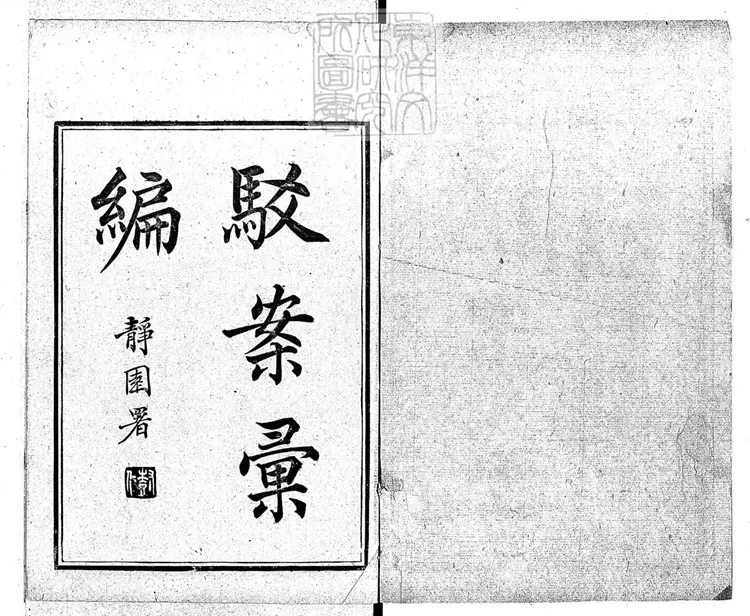 駁案彙
編
靜園署
東洋文
化研究
所圖書